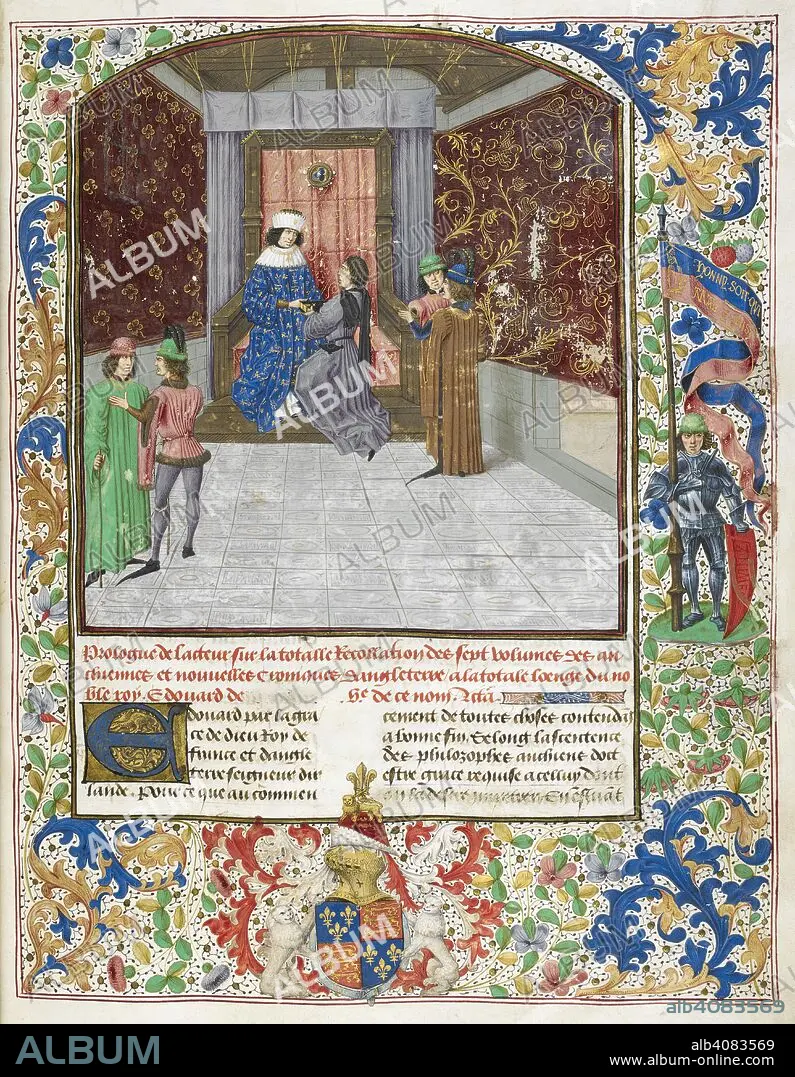 HONNE·SOIT·QVI
Prologue de lacteur sur la totalle Recollation des sept volumes des an
chiennes et nouvelles Cronicques dangleterre a la totale loenge du no
ble roy Edouard de
de ce nom. Acta
Edouard par la gra
ce de dieu Roy de
france et dangle
terre seigneur dir
lande. Pour ce que au commen
cement de toutes choses contendans
a bonne fin. Selong la sentence
des philozophes anchiens doit
estre grace requise a celluy dont
ALBUM
alb4083569
ALBUM
alb4083569
www.album-online.com